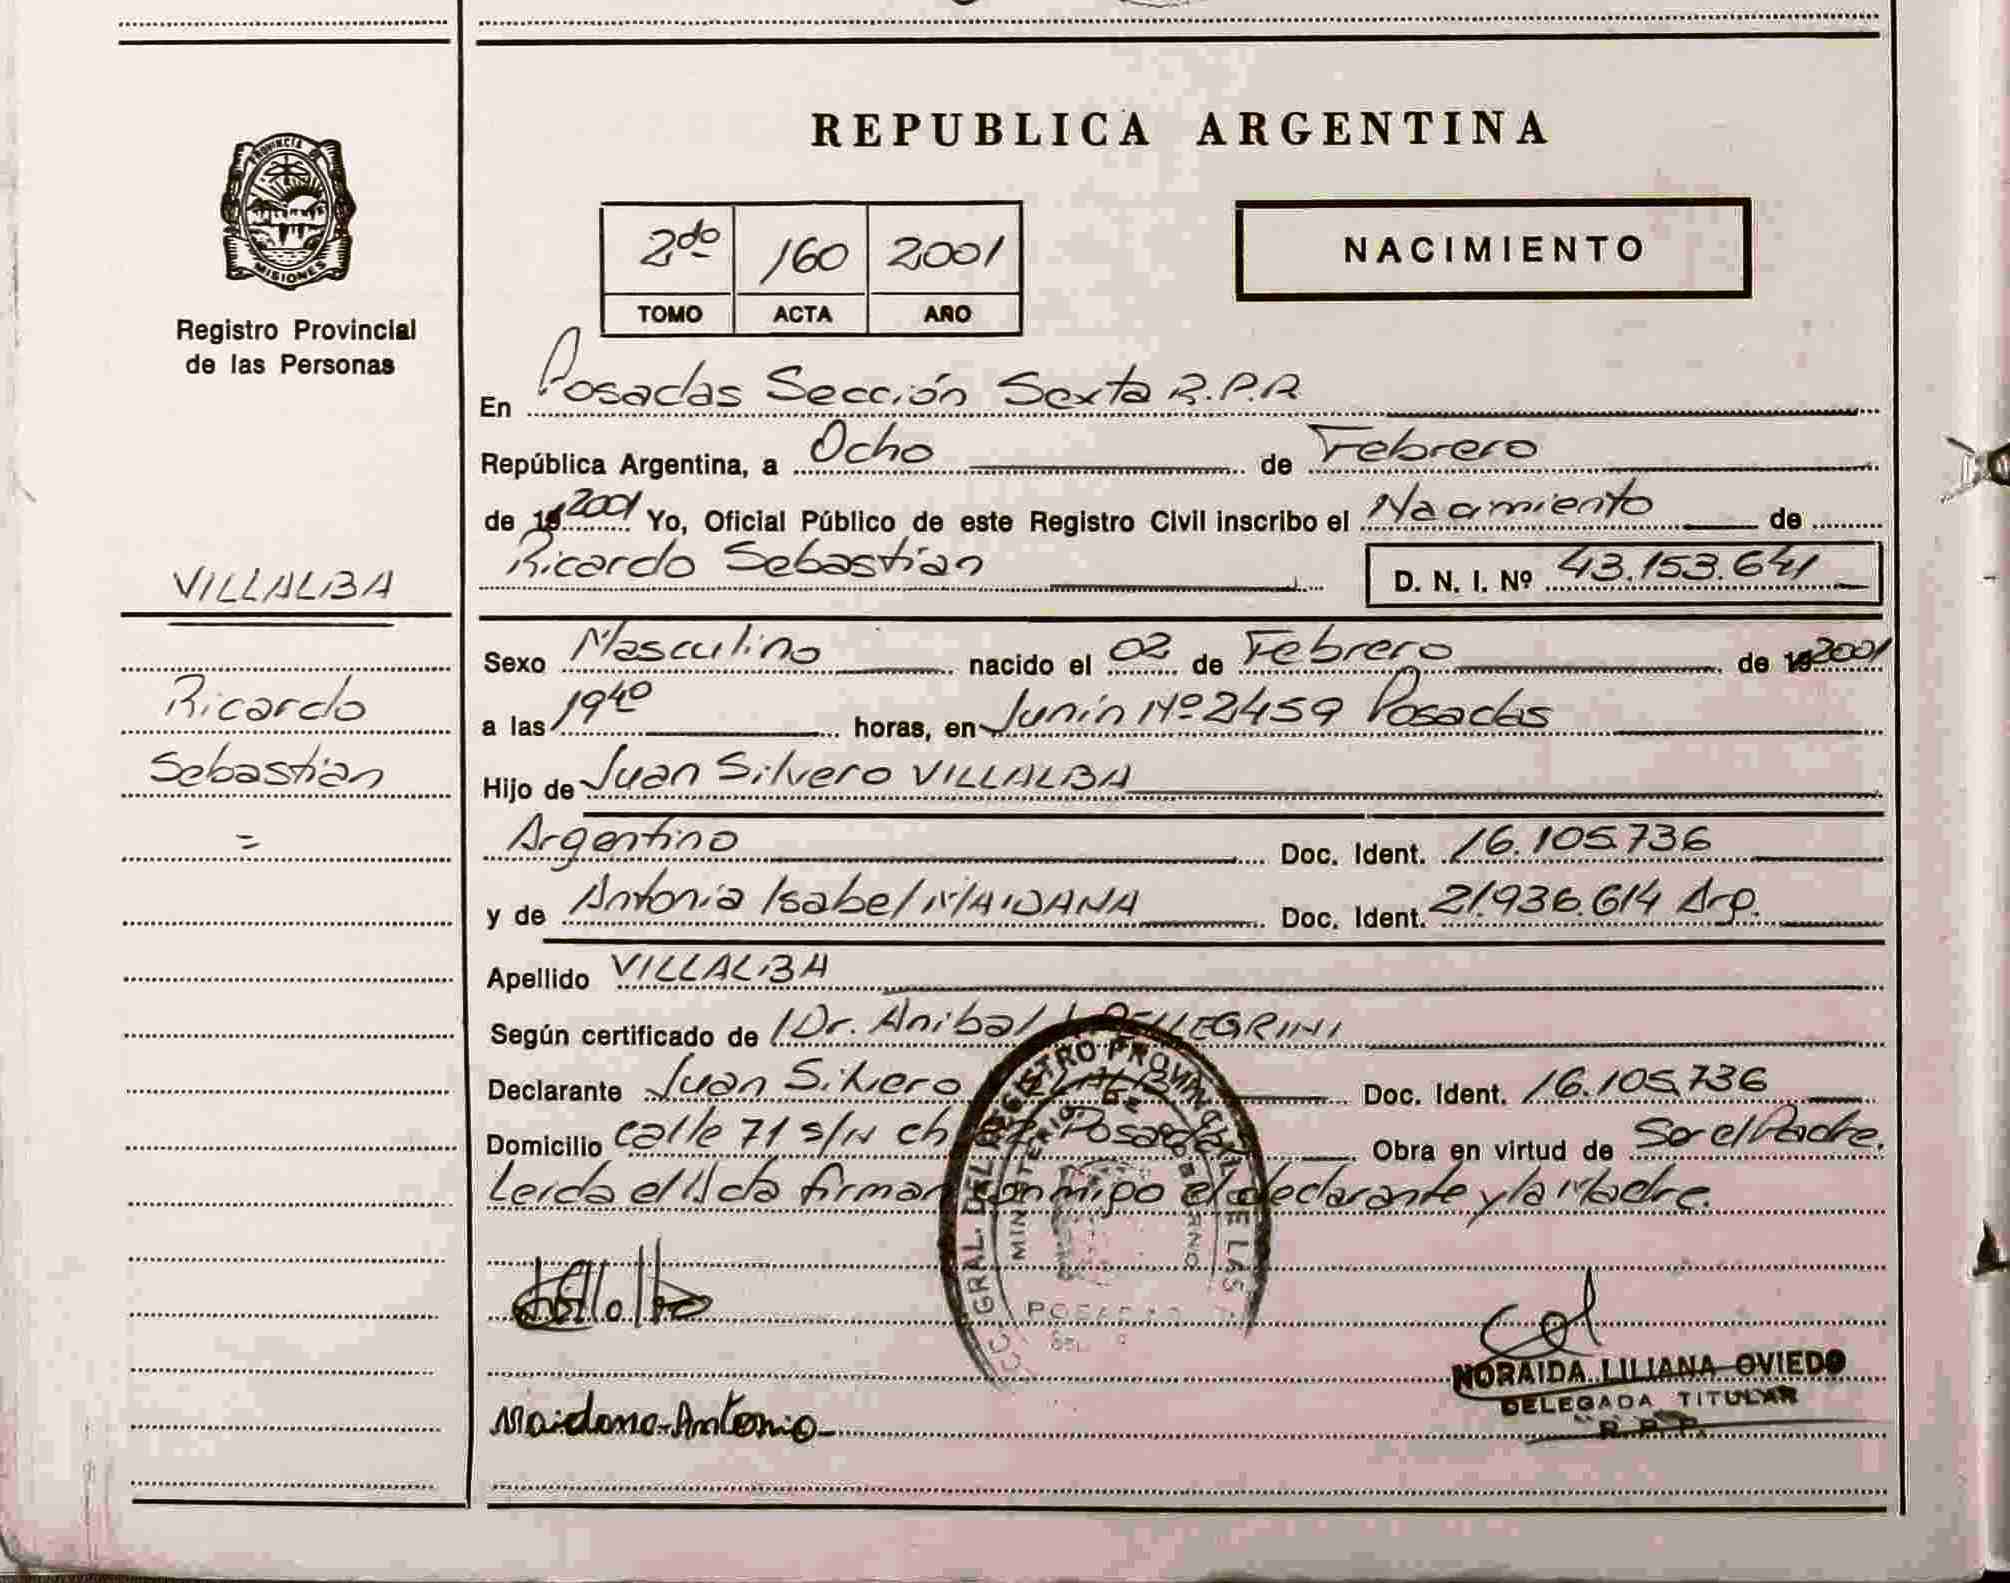 REPUBLICA ARGENTINA
PROVINCIA DE
MISIONES
Registro Provincial
de las Personas
2do 160 2001
TOMO ACTA AÑO
NACIMIENTO
En Posadas Sección Sexta R.P.P.
República Argentina, a Ocho de Febrero
de 19 2001 Yo, Oficial Público de este Registro Civil inscribo el Nacimiento de
Ricardo Sebastián D. N. I. Nº 43.153.641
VILLALBA
Ricardo
Sebastián
=
Sexo Masculino nacido el 02 de Febrero de 19 2001
a las 19 40 horas, en Junín Nº 2459 Posadas
Hijo de Juan Silvero VILLALBA
Argentino Doc. Ident. 16.105.736
y de Antonia Isabel MAIDANA Doc. Ident. 21.936.614 Arg.
Apellido VILLALBA
Según certificado de Dr. Anibal PELLEGRINI
Declarante Juan Silvero Doc. Ident. 16.105.736
Domicilio calle 71 s/n ch Posadas Obra en virtud de Ser el Padre.
Leída el Acta firman conmigo el declarante y la Madre.
GRAL. DEL REGISTRO PROVINCIAL DE LAS
MINISTERIO DE GOBIERNO
POSADAS
Villalba
Maidana Antonia
NORAIDA LILIANA OVIEDO
DELEGADA TITULAR
R.P.P.